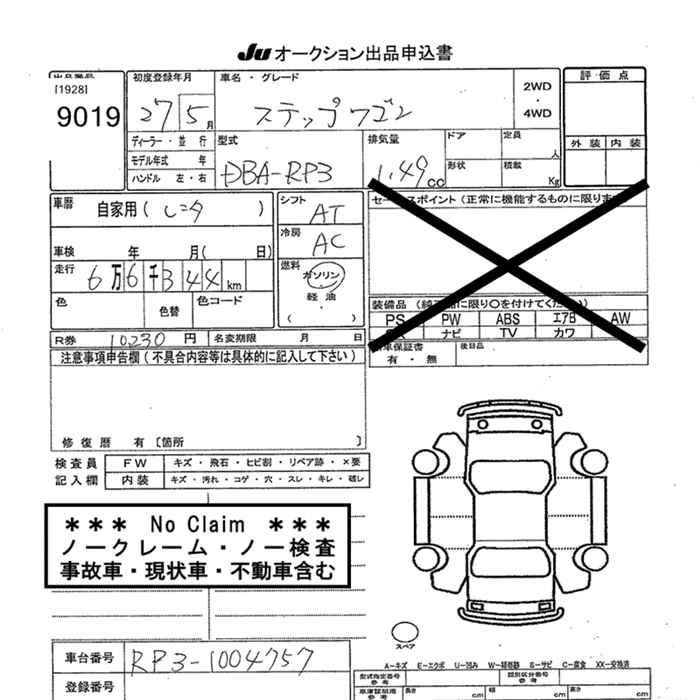 Ju オークション出品申込書
出品番号 初度登録年月 車名・グレード 評価点
[1928]
9019 27 5月 ステップワゴン 2WD・4WD
ディーラー・並行 型式 排気量 ドア 定員 人 外装 内装
モデル年式 年 形状 積載 Kg
ハンドル 左・右 DBA-RP3 1.49cc
車歴 自家用(レンタ) シフト AT セールスポイント(正常に機能するものに限りま
冷房 AC
車検 年 月(日)
走行 6万6千344km 燃料 ガソリン・軽油・( )
色 色替 色コード
装備品(純正品に限り○を付けてください)
PS PW ABS エアB AW
ナビ TV カワ
R券 10230円 名変期限 月 日
保証書 有・無 後日品
注意事項申告欄(不具合内容等は具体的に記入して下さい)
修復歴 有 [箇所 ]
検査員 FW キズ・飛石・ヒビ割・リペア跡・×要
記入欄 内装 キズ・汚れ・コゲ・穴・スレ・キレ・破レ
*** No Claim ***
ノークレーム・ノー検査
事故車・現状車・不動車含む
スペア
車台番号 RP3-1004757
A-キズ E-エクボ U-凹み W-補修跡 S-サビ C-腐食 XX-交換済
登録番号
型式指定番号 参考 類別区分番号 参考
長さ cm 幅 cm 高さ cm